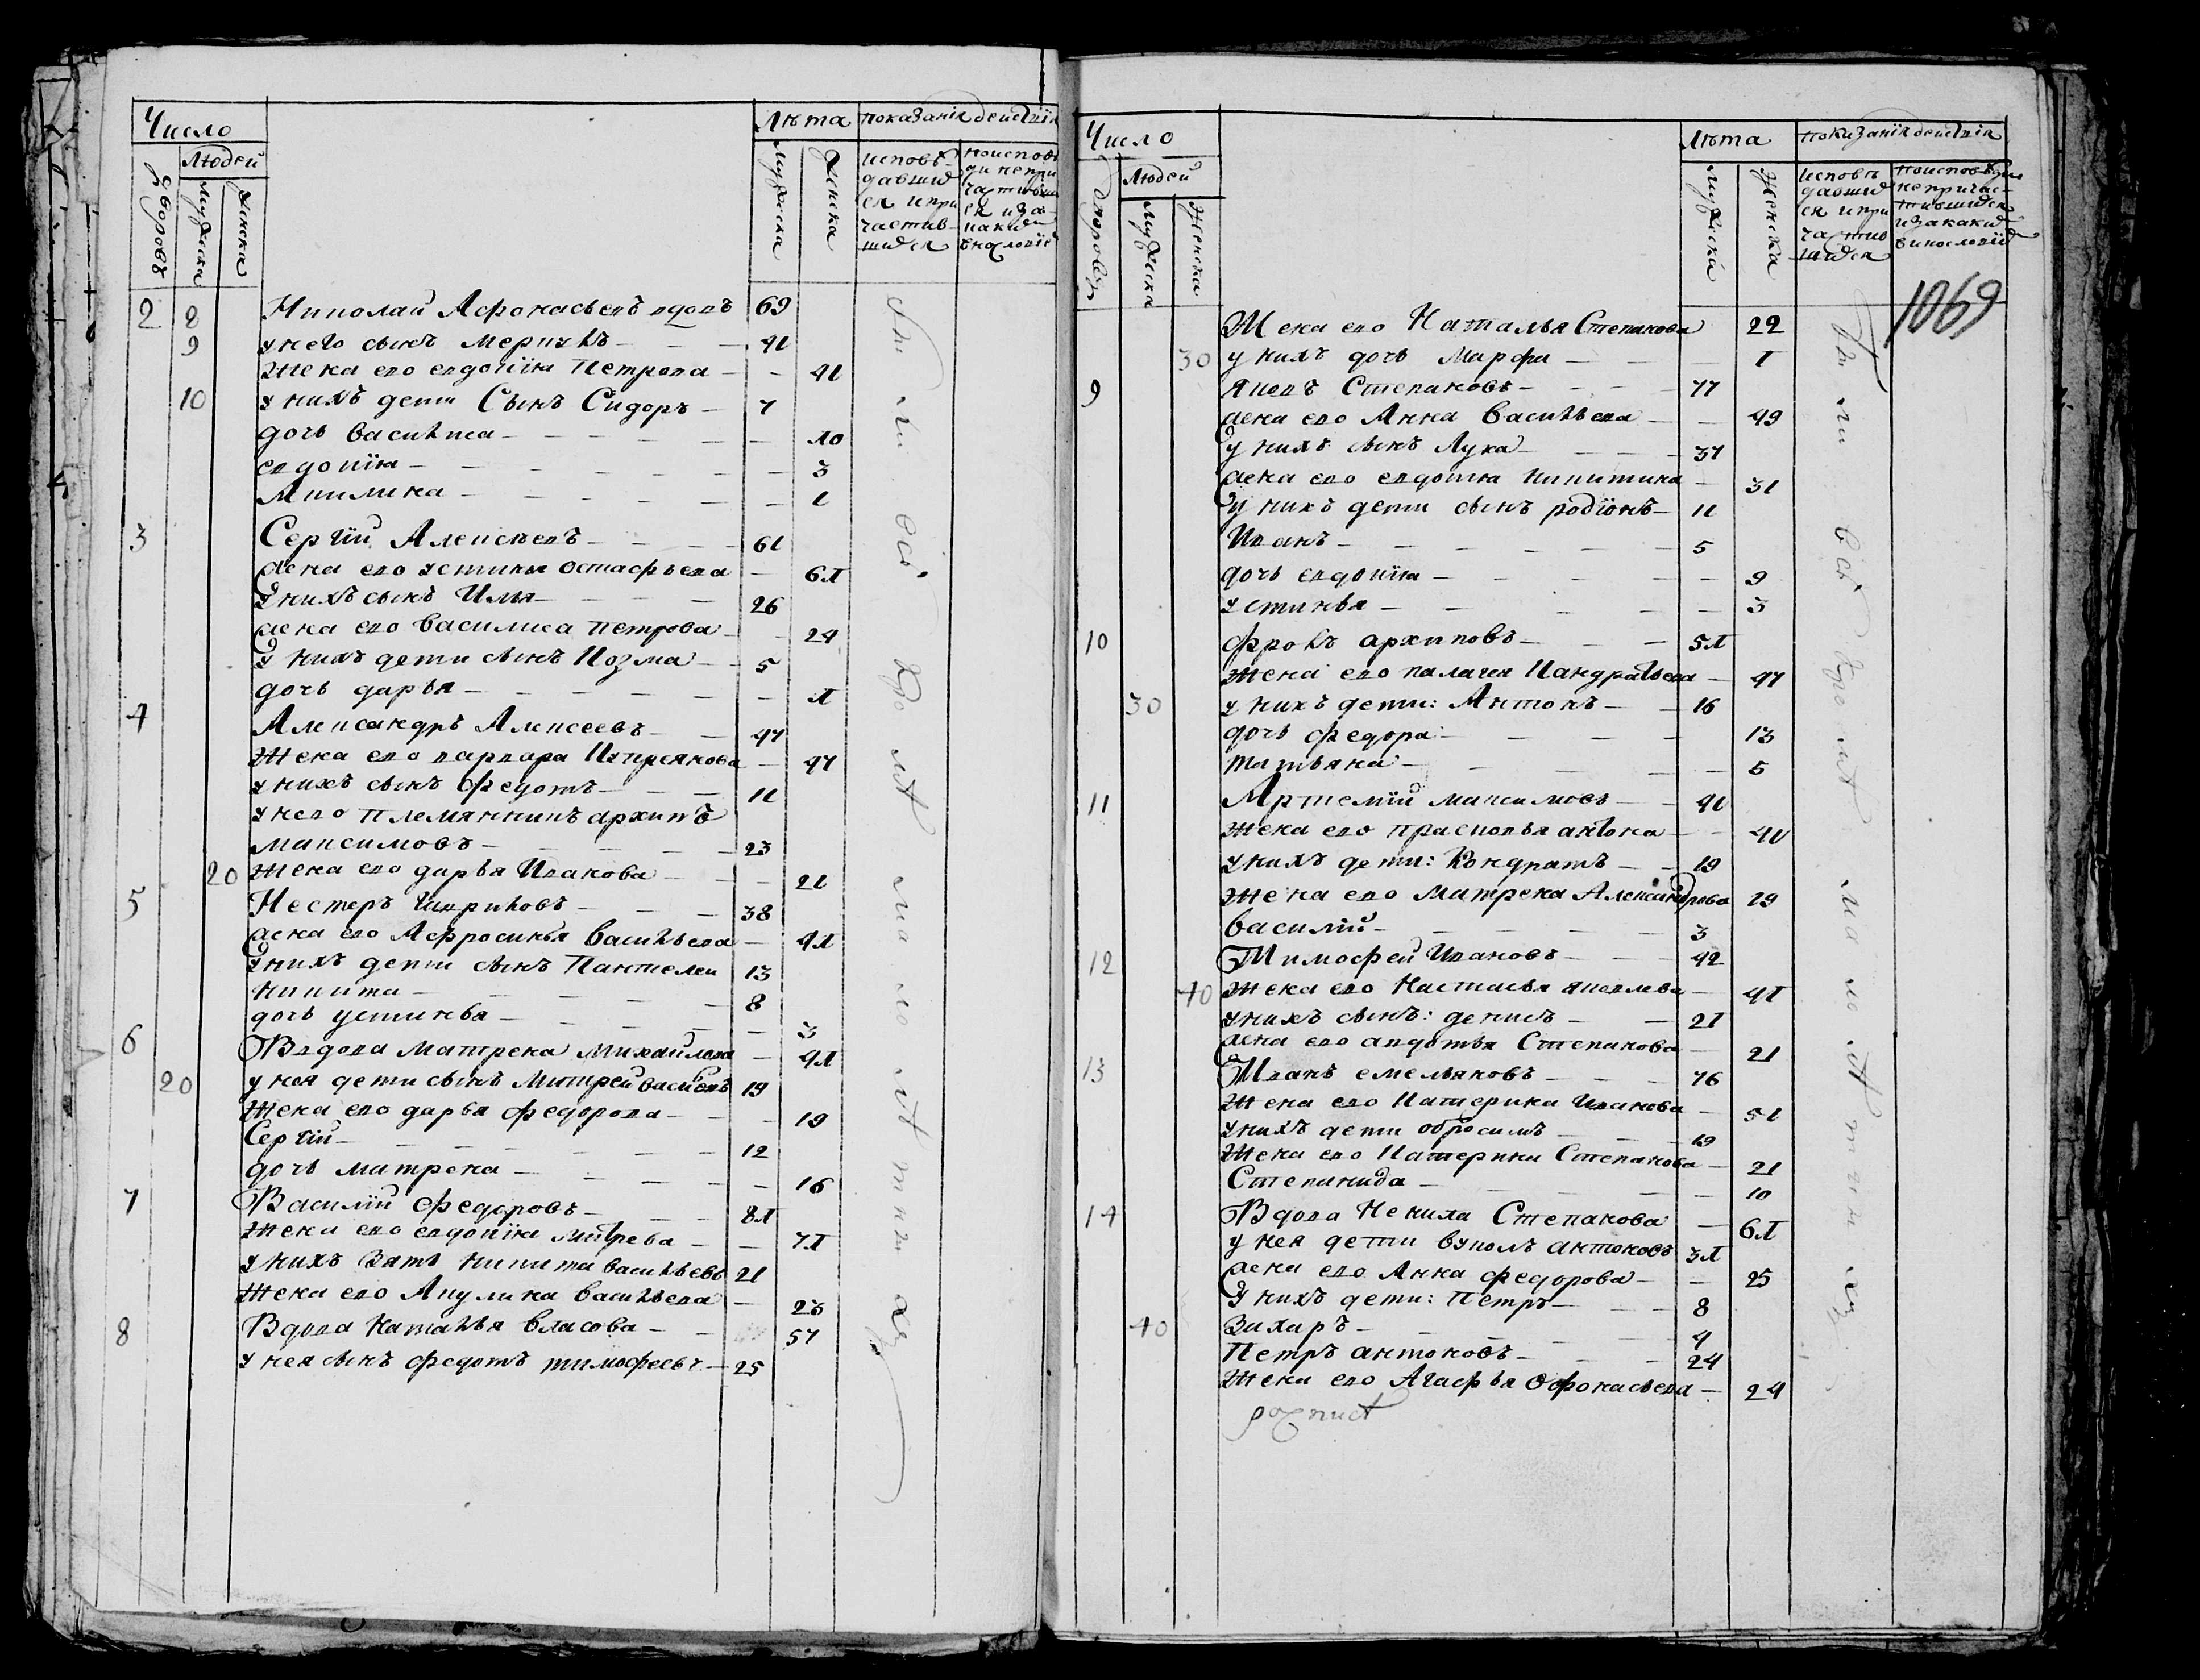 Число
Людей
дворовъ
мужеска
женска
Лѣта
показанія действія
мужеска
женска
исповѣ-
давших
ся и при
частив-
шихся
поисповѣ
ди непри
частивши
ся и за
какими
винословіе
2 8 Николай Афонасьевъ вдовъ 69
9 у него сынъ мерикѣ — 41
жена его евдокія Петрова — 41
10 у нихъ дети Сынъ Сидоръ — 7
дочь василиса — 10
евдокія — 3
Акилина — 1
3 Сергій Алексѣевъ — 61
жена его устинья остафьева — 61
у нихъ сынъ Илья — 26
жена его василиса петрова — 24
у нихъ дети сынъ Козма — 5
дочь дарья — 1
4 Александръ Алексеевъ — 47
Жена его варвара Купреянова — 47
у нихъ сынъ Федотъ — 11
у него племянникъ архипъ
максимовъ — 23
20 жена его дарья Иванова — 21
5 Нестеръ Гавриловъ — 38
жена его Афросинья васильева — 41
у нихъ дети сынъ Пантелеи 13
Никита — 8
дочь устинья — 3
6 Вдова матрена михайлова — 41
20 у нея дети сынъ митрей васильевъ 19
Жена его дарья федорова — 19
Сергій — 12
дочь матрена — 16
7 Василій Федоровъ — 81
Жена его евдокія митрева — 71
у нихъ Зять никита васильевъ 21
Жена его Акулина васильева — 23
8 Вдова наталья власова — 57
у нея сынъ федотъ тимофеевъ — 25
Число
Людей
дворовъ
мужеска
женска
Лѣта
показанія действія
мужеска
женска
исповѣ
давших
ся и при
частив
шихся
поисповѣди
непричас-
тившихся
и за какими
винословіе
1069
Жена его Наталья Степанова 22
30 у нихъ дочь Марфа — 1
9 Яковъ Степановъ — 77
жена его Анна васильева — 49
у нихъ сынъ Лука — 37
жена его евдокія никитина — 31
у нихъ дети сынъ родіонъ — 11
Иванъ — 5
дочь евдокія — 9
устинья — 3
10 Фролъ архиповъ — 51
жена его палагея Кандратьева — 47
30 у нихъ дети: Антонъ — 16
дочь федора — 13
татьяна — 5
11 Артемій максимовъ — 41
жена его прасковья антона — 41
у нихъ дети: Кондратъ — 19
Жена его Матрена Александрова 19
василій — 3
12 Тимофей Ивановъ — 42
40 Жена его Настасья яковлева — 41
у нихъ сынъ: денисъ — 21
жена его авдотья Степанова — 21
13 Иванъ емельяновъ — 76
Жена его Катерина Иванова — 51
у нихъ дети обросимъ — 19
Жена его Катерина Степанова — 21
Степанида — 10
14 Вдова Ненила Степанова — 61
у нея дети вуколъ антоновъ 31
жена его Анна федорова — 25
у нихъ дети: Петръ — 8
40 Захаръ — 4
Петръ антоновъ — 24
Жена его Агафья Офонасьева — 24